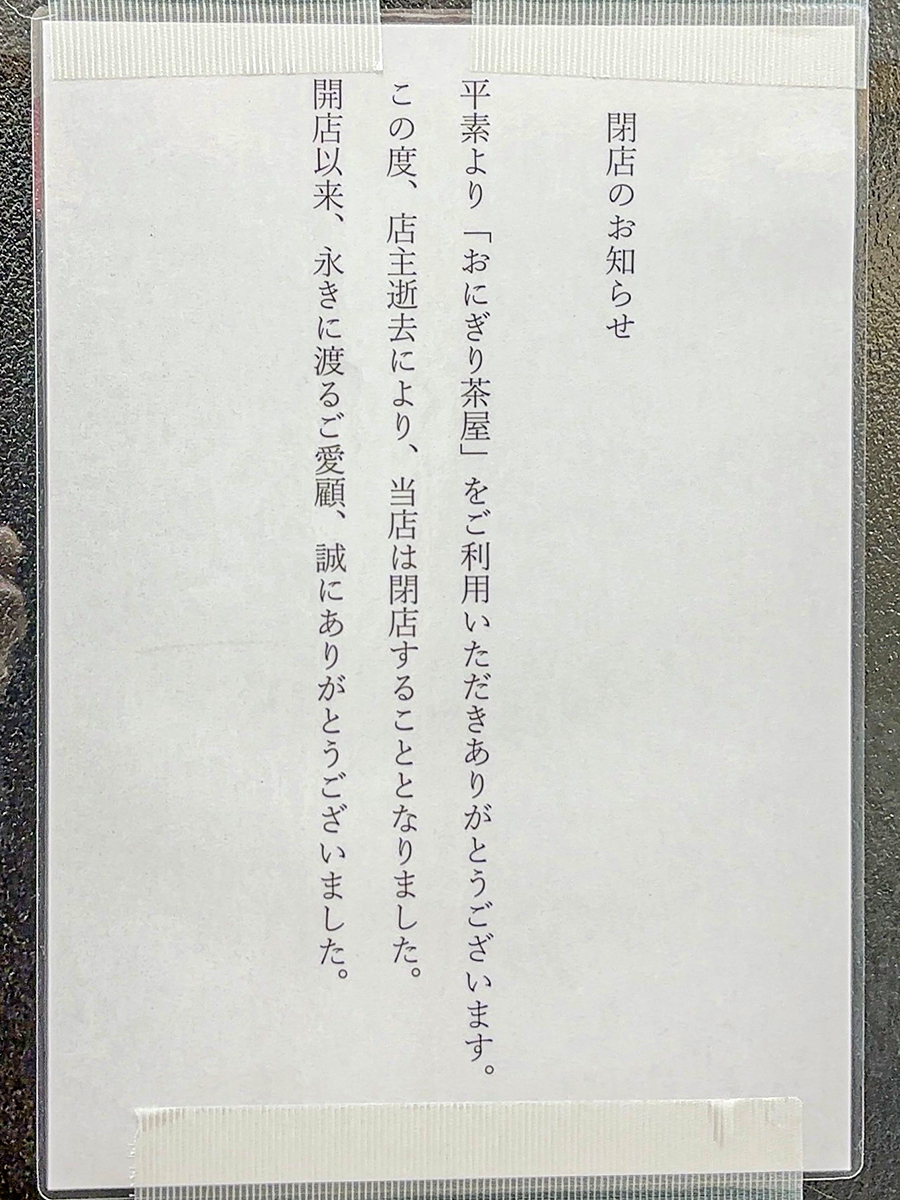 閉店のお知らせ
平素より「おにぎり茶屋」をご利用いただきありがとうございます。
この度、店主逝去により、当店は閉店することとなりました。
開店以来、永きに渡るご愛顧、誠にありがとうございました。